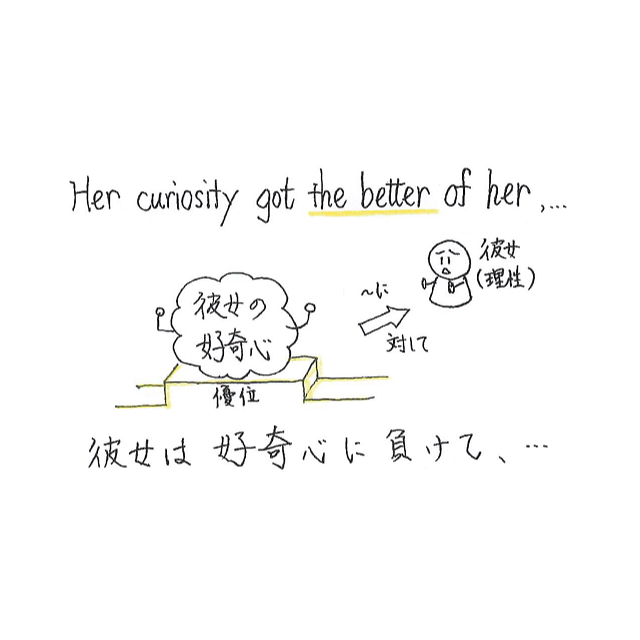 Her curiosity got the better of her,...
彼女の
好奇心
～に
対して
彼女
(理性)
優位
彼女は 好奇心に 負けて、…